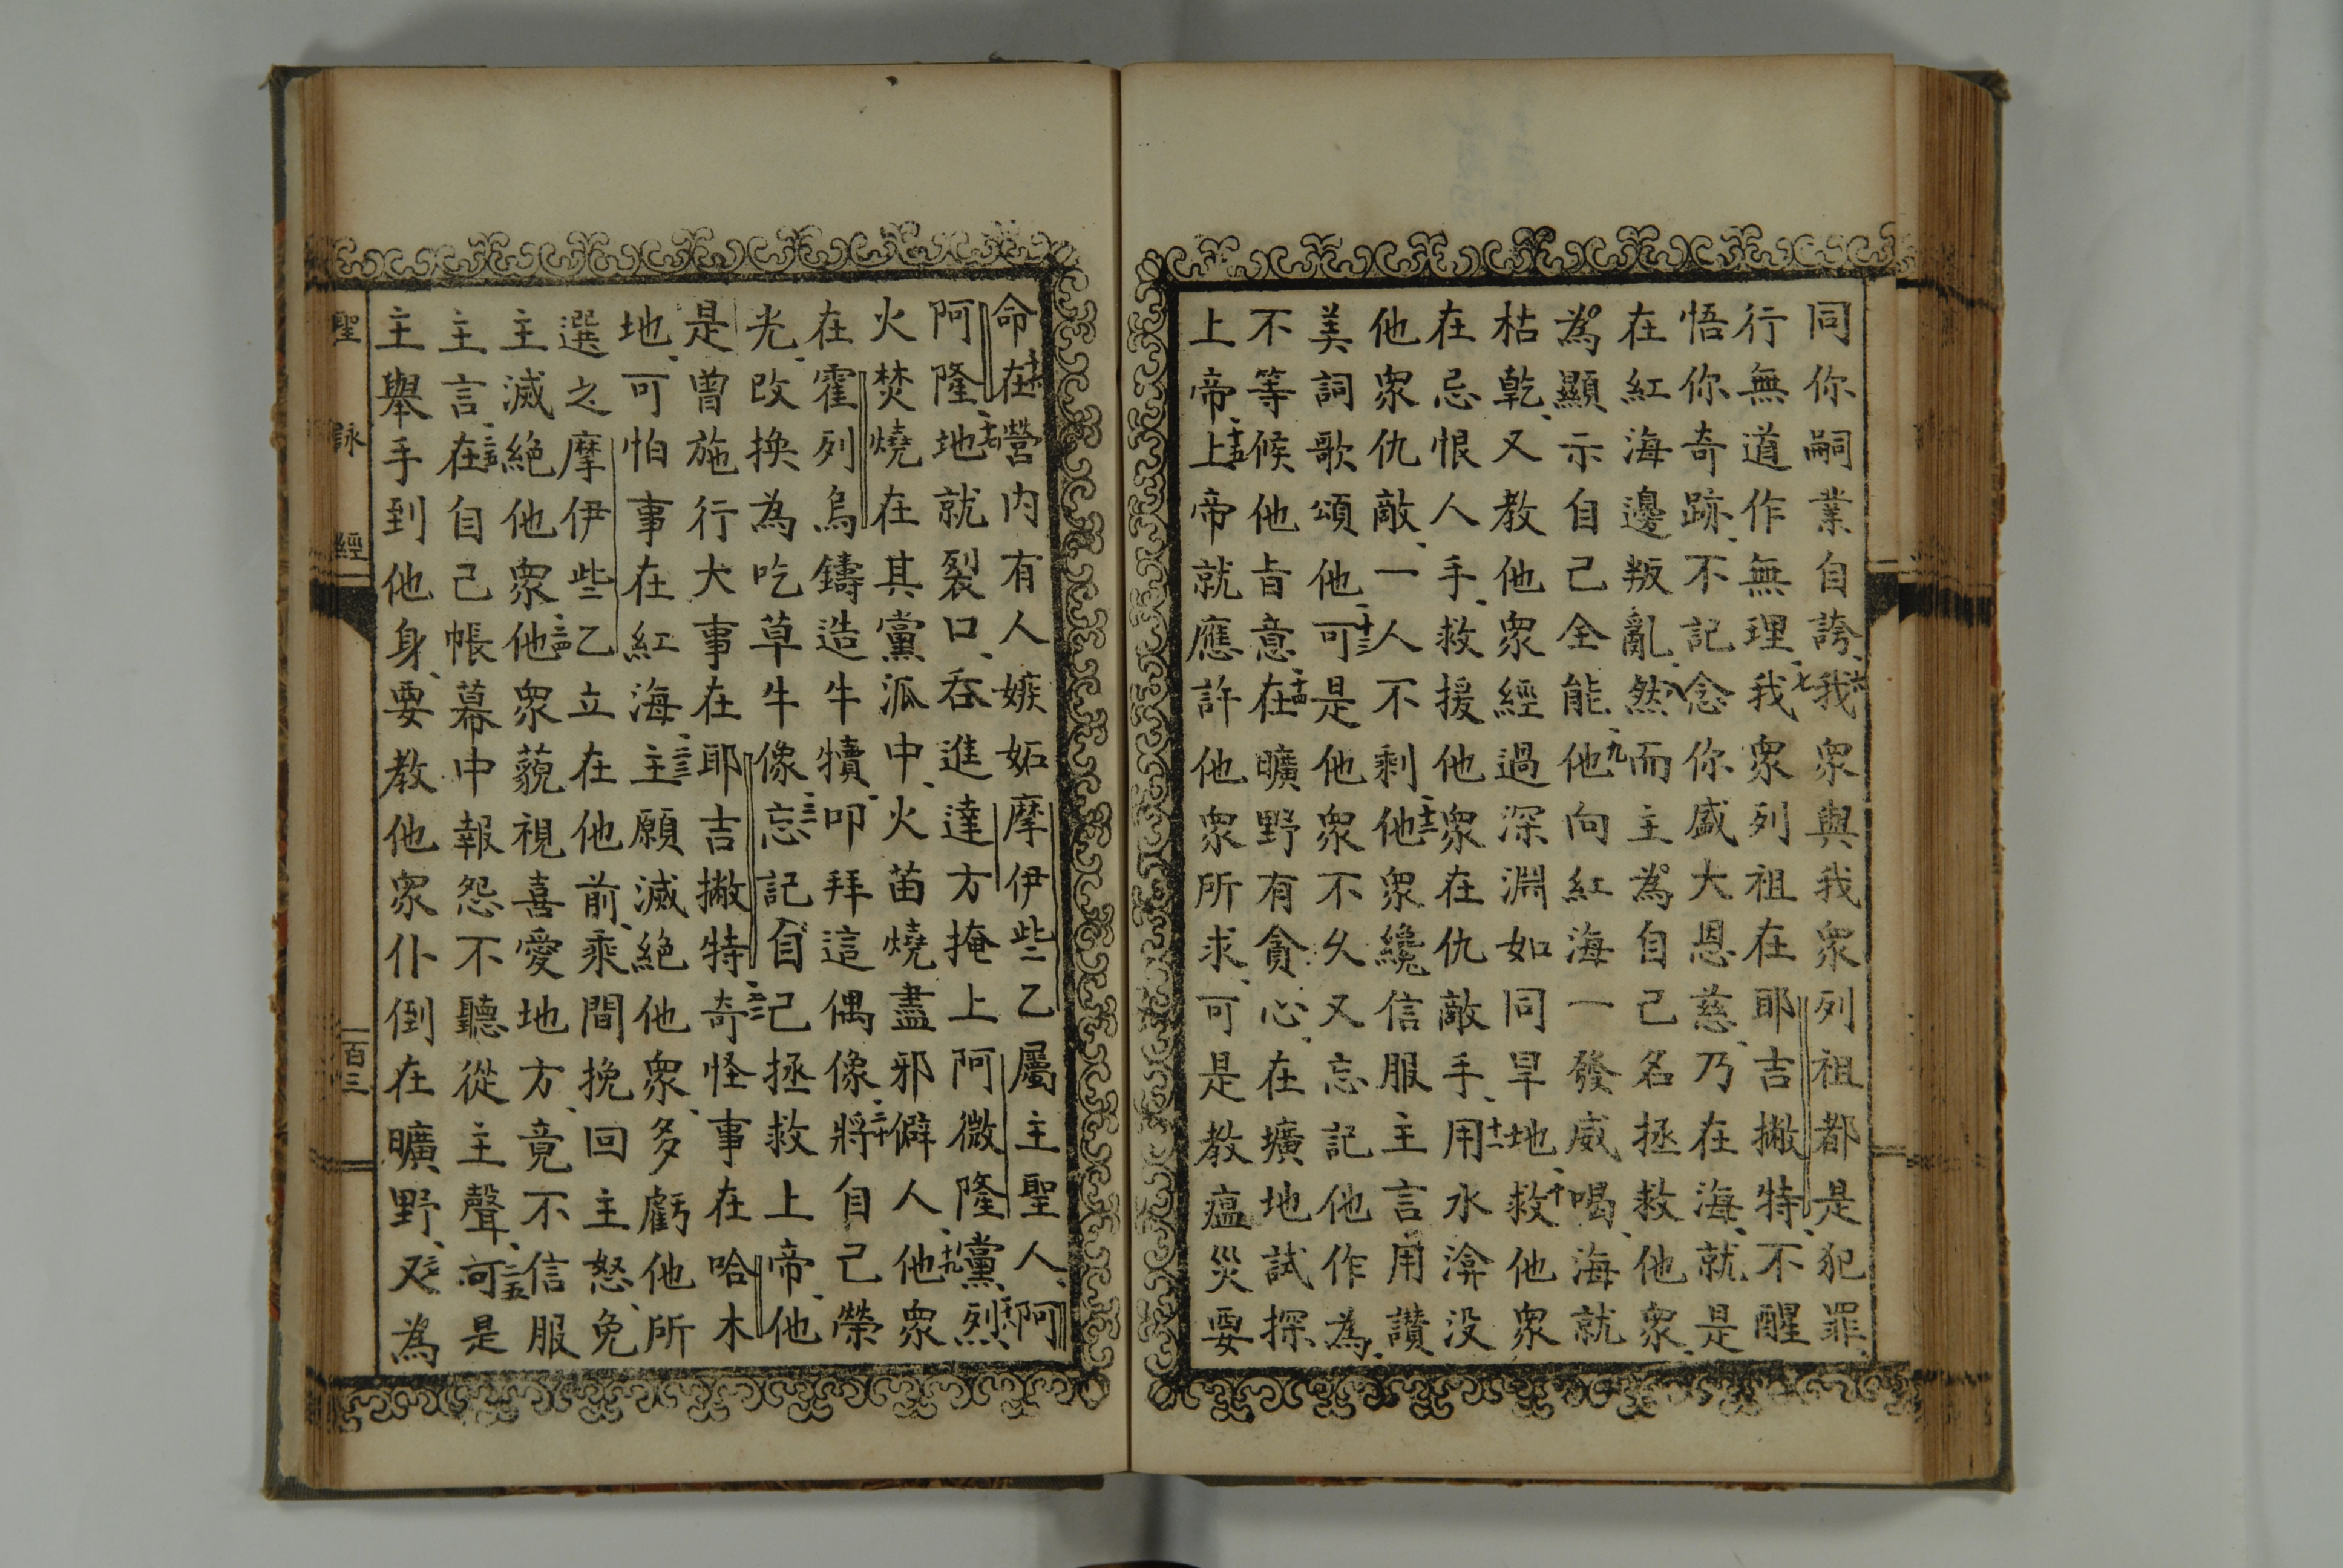 同你嗣業自誇、六我衆與我衆列祖都是犯罪、
行無道作無理、七我衆列祖在耶吉撇特、不醒
悟你奇跡、不記念你盛大恩慈、乃在海、就是
在紅海邊叛亂、八然而主為自己名拯救他衆、
為顯示自己全能、九他向紅海一發威喝、海就
枯乾、又教他衆經過深淵如同旱地、十救他衆
在忌恨人手、救援他衆在仇敵手、十一用水渰没
他衆仇敵、一人不剩、十二他衆纔信服主言用讚
美詞歌頌他、十三可是他衆不久又忘記他作為、
不等候他旨意、十四在曠野有貪心、在壙地試探
上帝、十五上帝就應許他衆所求、可是教瘟災要
命、十六在營内有人嫉妬摩伊些乙屬主聖人、阿
阿隆、十七地就裂口、吞進達方掩上阿微隆黨、十八烈
火焚燒在其黨派中、火苗燒盡邪僻人、十九他衆
在霍列烏鑄造牛犢、叩拜這偶像、二十將自己榮
光、改換為吃草牛像、二一忘記自己拯救上帝、他
是曾施行大事在耶吉撇特、二二奇怪事在哈木
地、可怕事在紅海、二三主願滅絕他衆、多虧他所
選之摩伊些乙立在他前、乘間挽回主怒、免
主滅絕他衆、二四他衆藐視喜愛地方、竟不信服
主言、二五在自己帳幕中報怨不聽從主聲、可是
主舉手到他身、要教他衆仆倒在曠野、又為
聖詠經
一百三